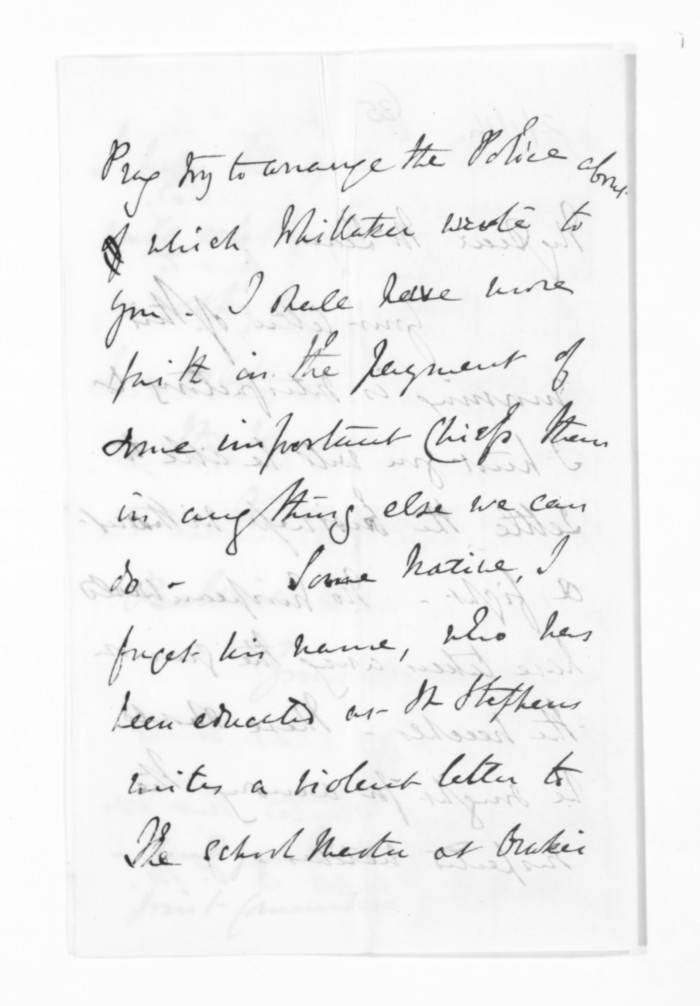 Pray try to arrange the Police about
which Whittaker wrote to
you - I shall have more
faith in the payment of
some important Chiefs than
in any thing else we can
do - Some Native, I
forget his name, who has
been educated at St Stephens
writes a violent letter to
the School Master at Orakei